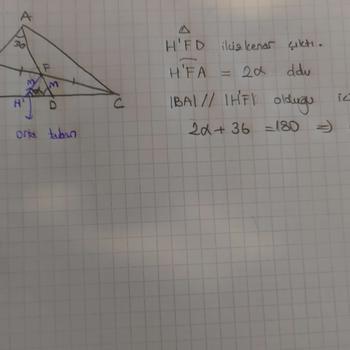 A
36
F
H'
D
C
orta taban
△
H'FD ikizkenar çıktı.
H'FA = 2α ddu
|BA| // |H'F| olduğu
2α + 36 = 180 ⇒